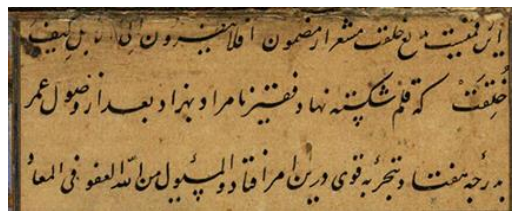 این نقشیست بدیع خلقت مشعر از مضمون افلا ینظرون الی الابل کیف
خُلِقَتْ که قلم شکسته نهاد فقیر نامراد بهزاد بعد از وصول عمر
بدرجه هفتاد و بتجربه قوی درین امر افتاد و المسئول من الله العفو فی المعاد